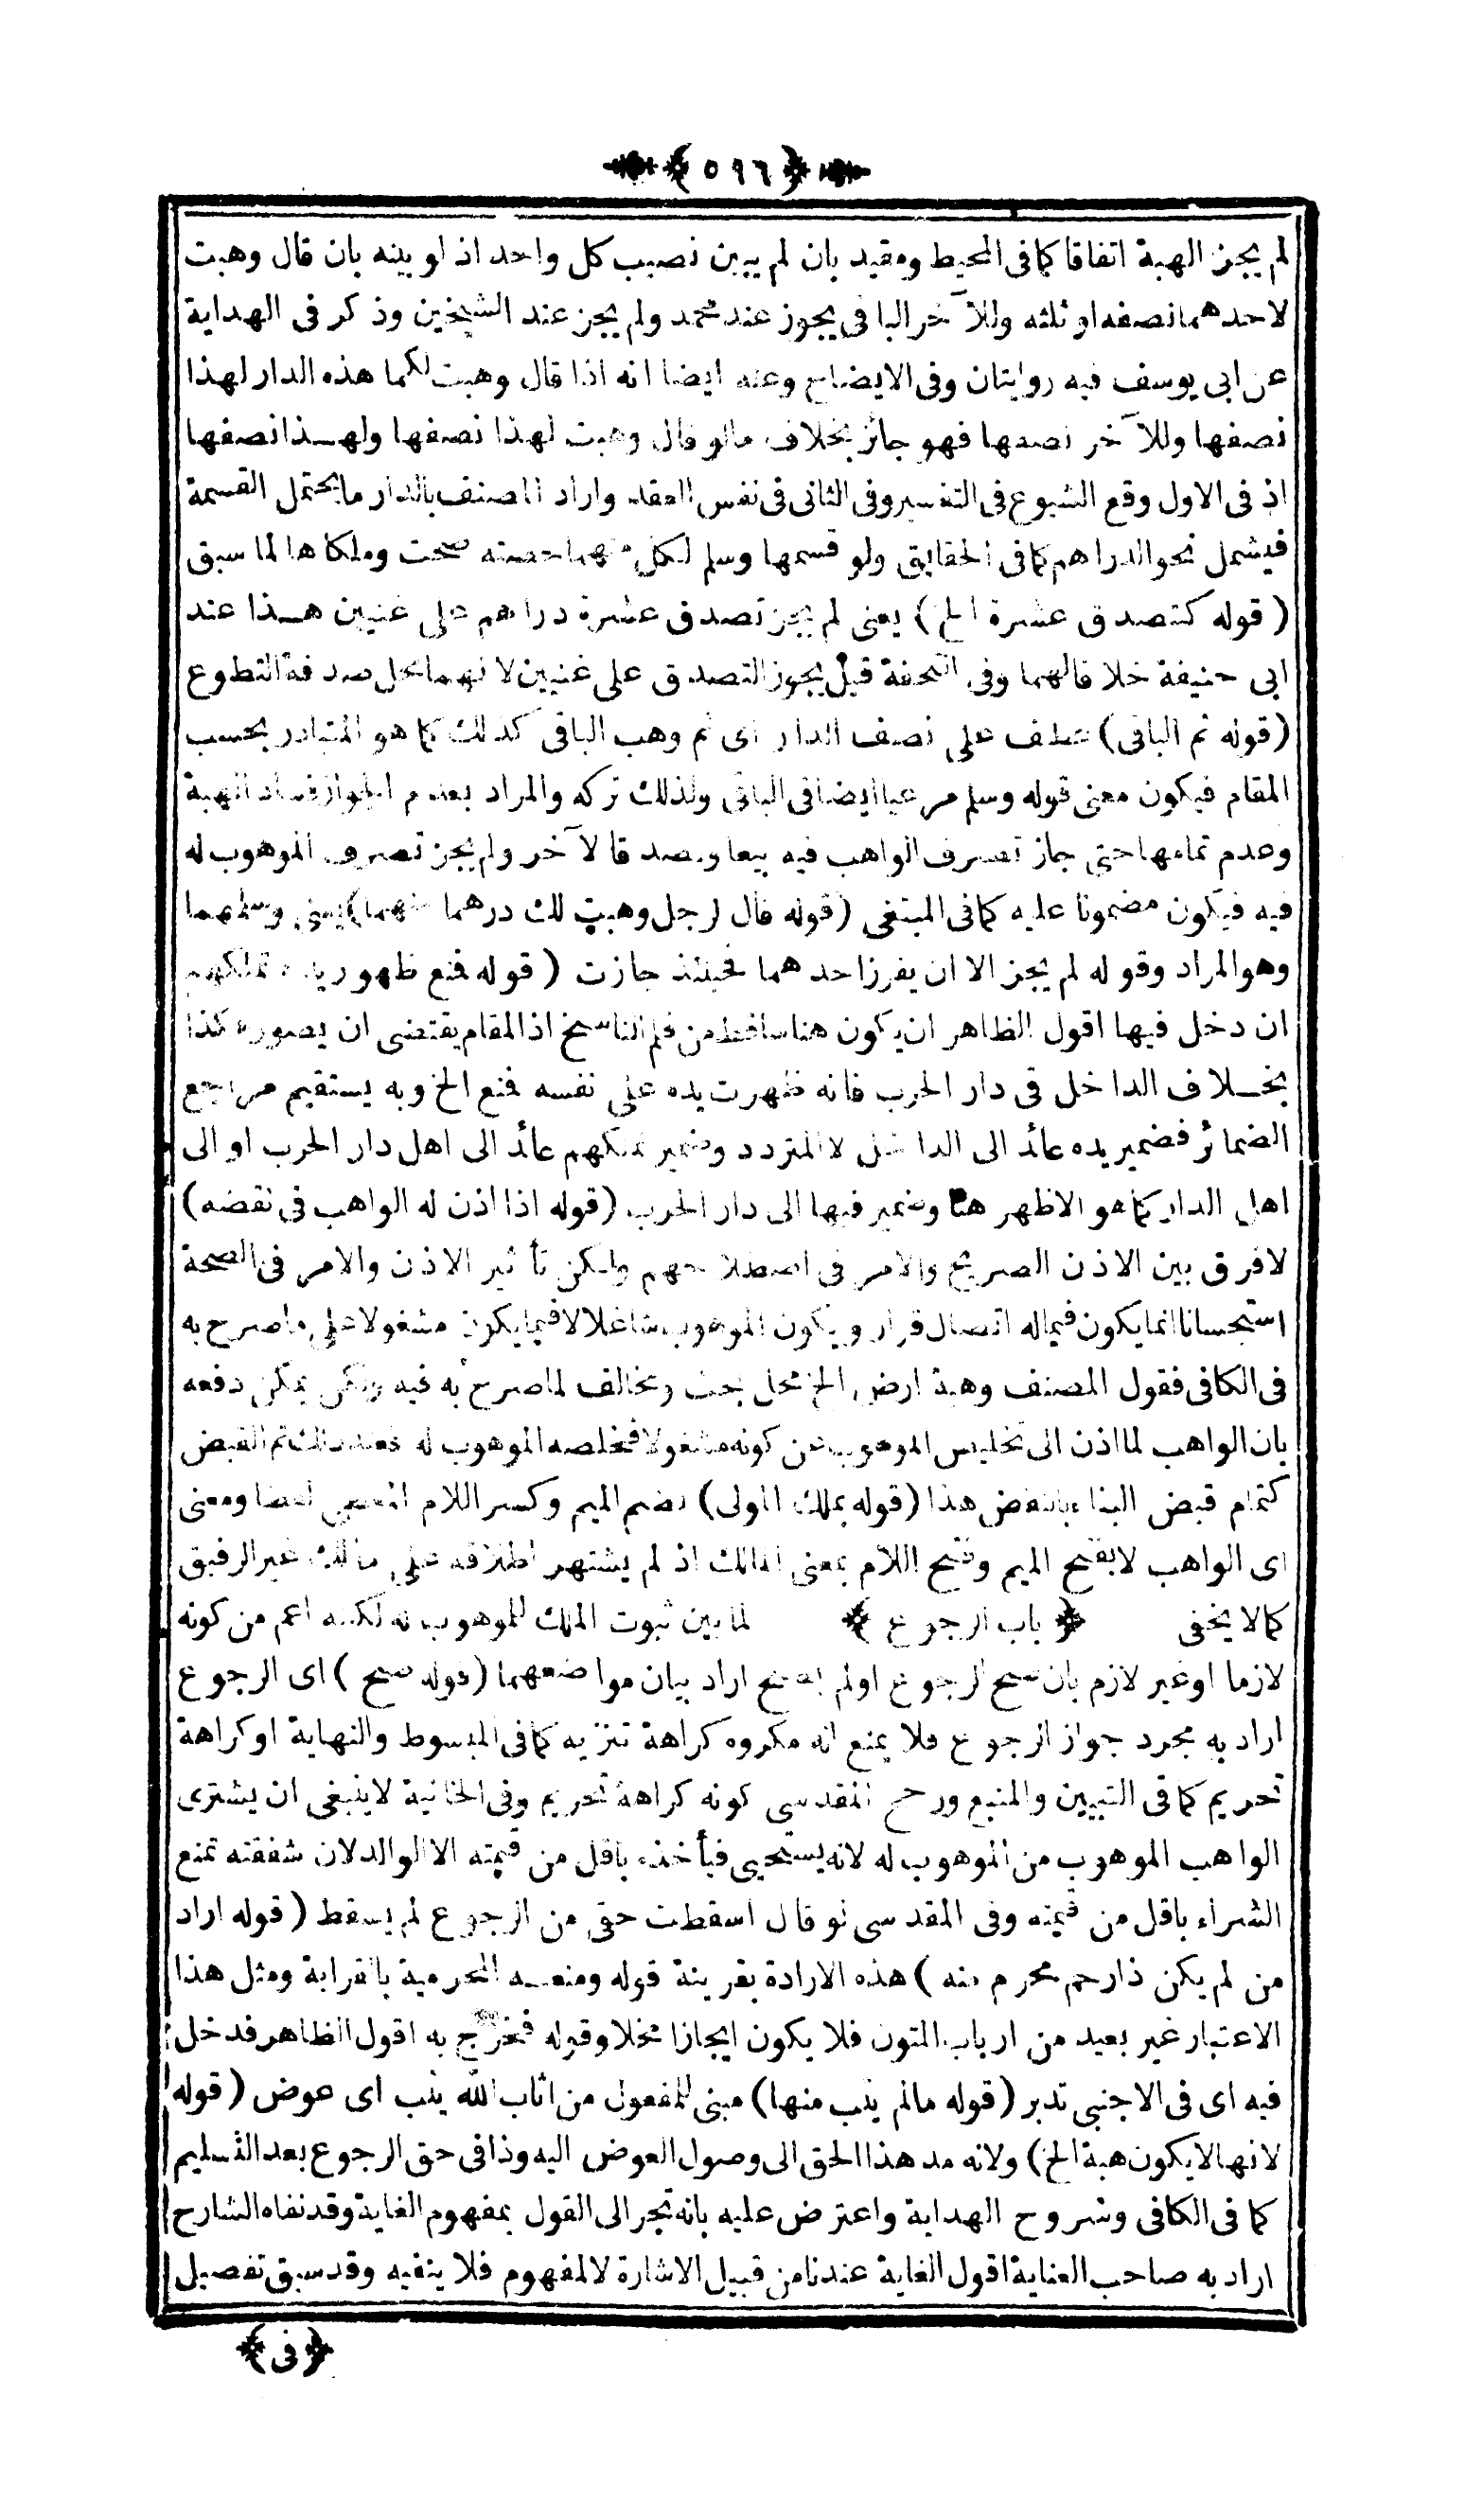 ﴿ ٥٩٦ ﴾
لم يجز الهبة اتفاقا كما فى المحيط ومقيد بان لم يبين نصيب كل واحد اذ لو بينه بان قال وهبت
لاحدهما نصفه او ثلثه وللآخر الباقى يجوز عند محمد ولم يجز عند الشيخين وذكر فى الهداية
عن ابى يوسف فيه روايتان وفى الايضاح وعنه ايضا انه اذا قال وهبت لكما هذه الدار لهذا
نصفها وللآخر نصفها فهو جائز بخلاف مالو قال وهبت لهذا نصفها ولهذا نصفها
اذ فى الاول وقع الشيوع فى التفسير وفى الثانى فى نفس العقد واراد المصنف بالدار ما يحتمل القسمة
فيشمل نحو الدراهم كما فى الحقايق ولو قسمها وسلم لكل منهما حصته صحت وملكاها لما سبق
( قوله كتصدق عشرة الخ ) يعنى لم يجز تصدق عشرة دراهم على غنيين هذا عند
ابى حنيفة خلافا لهما وفى التحفة قيل يجوز التصدق على غنيين لانهما محل صدقة التطوع
(قوله ثم الباقى) عطف على نصف الدار اى ثم وهب الباقى كذلك كما هو المتبادر بحسب
المقام فيكون معنى قوله وسلم مرعيا ايضا فى الباقى ولذلك تركه والمراد بعدم الجواز فساد الهبة
وعدم تمامها حتى جاز تصرف الواهب فيه بيعا وتصدقا لآخر ولم يجز تصرف الموهوب له
فيه فيكون مضمونا عليه كما فى المبتغى (قوله قال لرجل وهبت لك درهما منهما) يعنى وسلمهما
وهو المراد وقوله لم يجز الا ان يفرز احدهما فحينئذ جازت ( قوله فمنع ظهور يده تملكهم
ان دخل فيها اقول الظاهر ان يكون هنا ساقط من قلم الناسخ اذ المقام يقتضى ان يصوره كذا
بخلاف الداخل فى دار الحرب فانه ظهرت يده على نفسه فمنع الخ وبه يستقيم مراجع
الضمائر فضمير يده عائد الى الداخل لا المتردد وضمير تملكهم عائد الى اهل دار الحرب او الى
اهل الدار كما هو الاظهر هنا وضمير فيها الى دار الحرب (قوله اذا اذن له الواهب فى نقضه)
لا فرق بين الاذن الصريح والامر فى اصطلاحهم ولكن تأثير الاذن والامر فى الصحة
استحسانا انما يكون فيماله اتصال قرار ويكون الموهوب شاغلا لا فيما يكون مشغولا على ما صرح به
فى الكافى فقول المصنف وهبة ارض الخ محل بحث ومخالف لما صرح به فيه ولكن يمكن دفعه
بان الواهب لما اذن الى تخليص الموهوب عن كونه مشغولا فخلصه الموهوب له فعند ذلك تم القبض
كتمام قبض البناء بالنقض هذا (قوله بملك المولى) بضم الميم وكسر اللام لفظا ومعنى
اى الواهب لا بفتح الميم وفتح اللام بمعنى المالك اذ لم يشتهر اطلاقه على مالك غير الرقيق
كما لا يخفى ﴿ باب الرجوع ﴾ لما بين ثبوت الملك للموهوب له لكنه اعم من كونه
لازما او غير لازم بان صح الرجوع اولم يصح اراد بيان مواضعهما (قوله صح ) اى الرجوع
اراد به مجرد جواز الرجوع فلا يمنع انه مكروه كراهة تنزيه كما فى المبسوط والنهاية او كراهة
تحريم كما فى التبيين والمنبع ورجح المقدسى كونه كراهة تحريم وفى الخانية لا ينبغى ان يشترى
الواهب الموهوب من الموهوب له لانه يستحيى فيأخذه باقل من قيمته الا الوالد لان شفقته تمنع
الشراء باقل من قيمته وفى المقدسى لو قال اسقطت حقى من الرجوع لم يسقط ( قوله اراد
من لم يكن ذا رحم محرم منه ) هذه الارادة بقرينة قوله ومنعه المحرمية بالقرابة ومثل هذا
الاعتبار غير بعيد من ارباب المتون فلا يكون ايجازا مخلا وقوله فخرج به اقول الظاهر فدخل
فيه اى فى الاجنبى تدبر (قوله مالم يثب منها) مبنى للمفعول من اثاب الله يثب اى عوض (قوله
لانها لا يكون هبة الخ) ولانه مد هذا الحق الى وصول العوض اليه وذا فى حق الرجوع بعد التسليم
كما فى الكافى وشروح الهداية واعترض عليه بانه تجر الى القول بمفهوم الغاية وقد نفاه الشارح
اراد به صاحب العناية اقول الغاية عندنا من قبيل الاشارة لا المفهوم فلا ينفيه وقد سبق تفصيل
﴿ فى ﴾